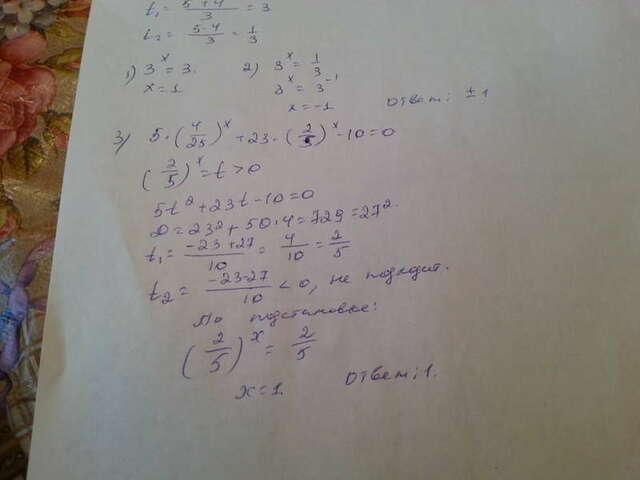 t₁ = (5+4)/3 = 3
t₂ = (5-4)/3 = 1/3
1) 3^x = 3. 2) 3^x = 1/3
x = 1 3^x = 3^-1
x = -1 Ответ: ±1
3) 5·(4/25)^x + 23·(2/5)^x - 10 = 0
(2/5)^x = t > 0
5t² + 23t - 10 = 0
D = 23² + 50·4 = 729 = 27².
t₁ = (-23+27)/10 = 4/10 = 2/5
t₂ = (-23-27)/10 < 0, не подходит.
По подстановке:
(2/5)^x = 2/5
x = 1. Ответ: 1.